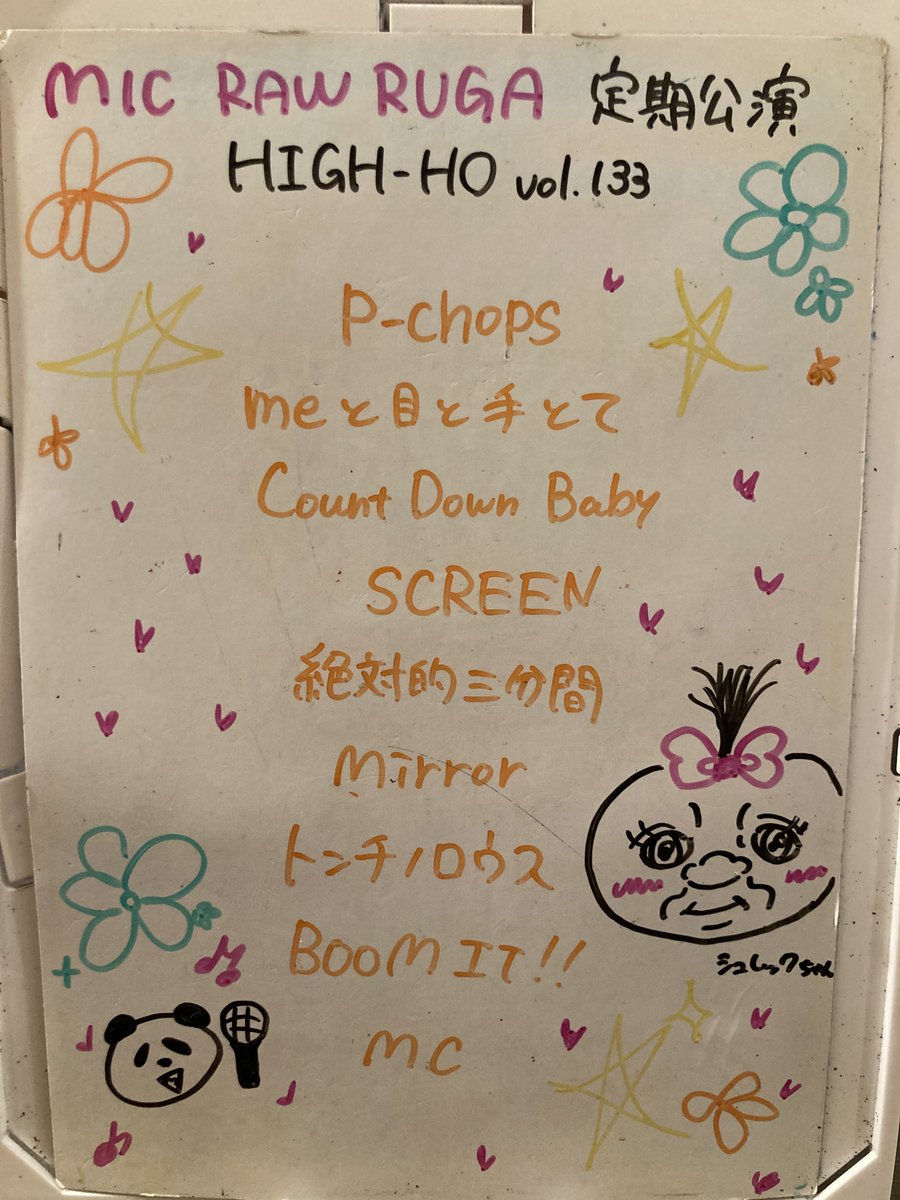 MIC RAW RUGA 定期公演
HIGH-HO vol.133
P-chops
meと目と手とて
Count Down Baby
SCREEN
絶対的三分間
Mirror
トンチノロウス
BOOM IT!!
MC
シュレックちゃん